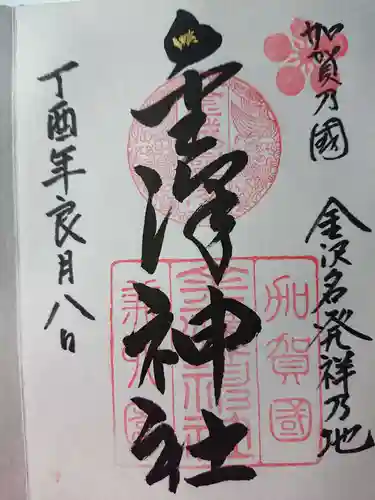 加賀乃國
金沢名発祥乃地
金澤神社
加賀國
丁酉年良月八日